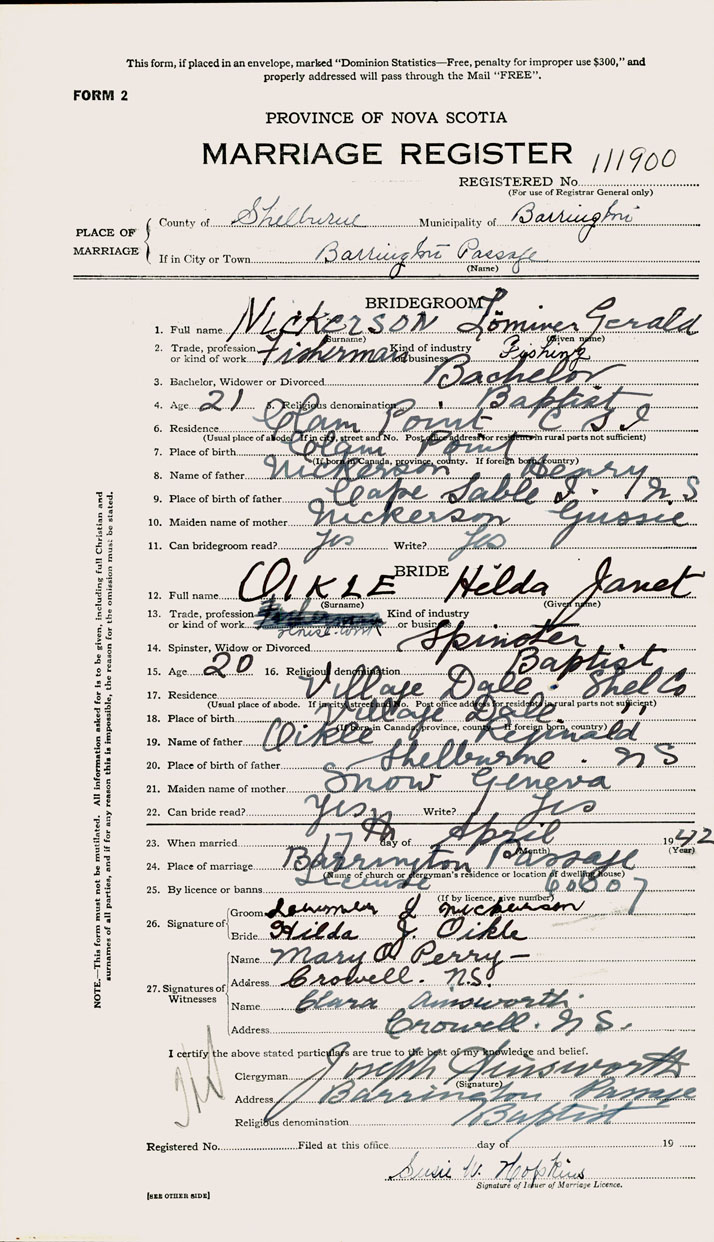 This form, if placed in an envelope, marked “Dominion Statistics—Free, penalty for improper use $300,” and
properly addressed will pass through the Mail “FREE”.
FORM 2
PROVINCE OF NOVA SCOTIA
MARRIAGE REGISTER 111900
REGISTERED No.
(For use of Registrar General only)
PLACE OF MARRIAGE
County of Shelburne Municipality of Barrington
If in City or Town Barrington Passage
(Name)
BRIDEGROOM
1. Full name NICKERSON Gerald
(Surname) (Given name)
2. Trade, profession or kind of work Fisherman Kind of industry or business Fishing
3. Bachelor, Widower or Divorced Bachelor
4. Age 21 5. Religious denomination Baptist
6. Residence Clam Point C S I
(Usual place of abode. If in city, street and No. Post office address for residents in rural parts not sufficient)
7. Place of birth Clam Point
(If born in Canada, province, county. If foreign born, country)
8. Name of father Nickerson Henry
9. Place of birth of father Cape Sable I. N S
10. Maiden name of mother Nickerson Gussie
11. Can bridegroom read? Yes Write? Yes
BRIDE
12. Full name OIKLE Hilda Janet
(Surname) (Given name)
13. Trade, profession or kind of work Kind of industry or business
14. Spinster, Widow or Divorced Spinster
15. Age 20 16. Religious denomination Baptist
17. Residence Village Dale. Shel Co
(Usual place of abode. If in city street and No. Post office address for residents in rural parts not sufficient)
18. Place of birth Village Dale " "
(If born in Canada, province, county. If foreign born, country)
19. Name of father Oikle Reginald
20. Place of birth of father Shelburne. N S
21. Maiden name of mother Snow Geneva
22. Can bride read? Yes Write? Yes
23. When married 17th day of April 1942
(Month) (Year)
24. Place of marriage Barrington Passage
(Name of church or clergyman's residence or location of dwelling house)
25. By licence or banns License 60607
(If by licence, give number)
26. Signature of
Groom J Nickerson
Bride Hilda J. Oikle
27. Signatures of Witnesses
Name Mary O Perry
Address Crowell. N.S.
Name Clara Ainsworth
Address Crowell. N S.
I certify the above stated particulars are true to the best of my knowledge and belief.
Clergyman Joseph Ainsworth
(Signature)
Address Barrington Passage
Religious denomination Baptist
Registered No. Filed at this office day of 19
Susie W. Hopkins
Signature of Issuer of Marriage Licence.
[SEE OTHER SIDE]
NOTE.—This form must not be mutilated. All information asked for is to be given, including full Christian and
surnames of all parties, and if for any reason this is impossible, the reason for the omission must be stated.